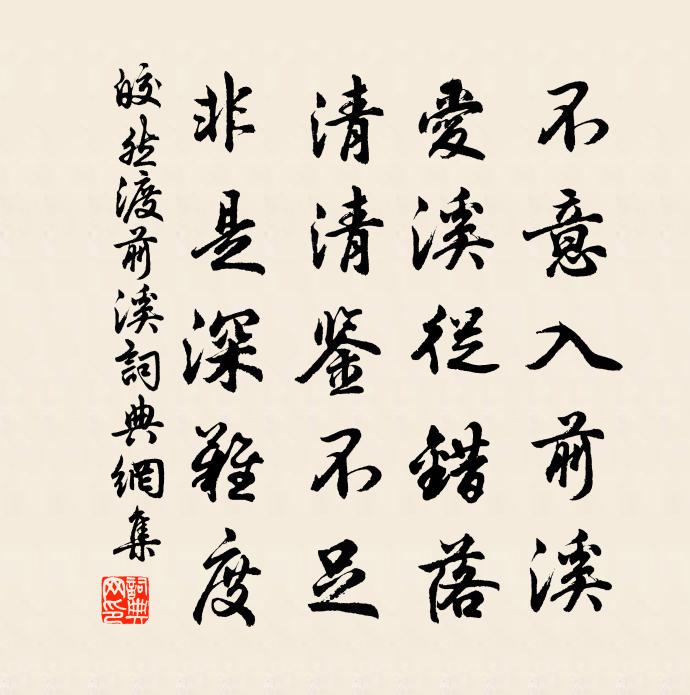 不意入前溪
愛溪從錯落
清清鉴不足
非是深難度
皎然渡前溪詞典網集
詞典網印